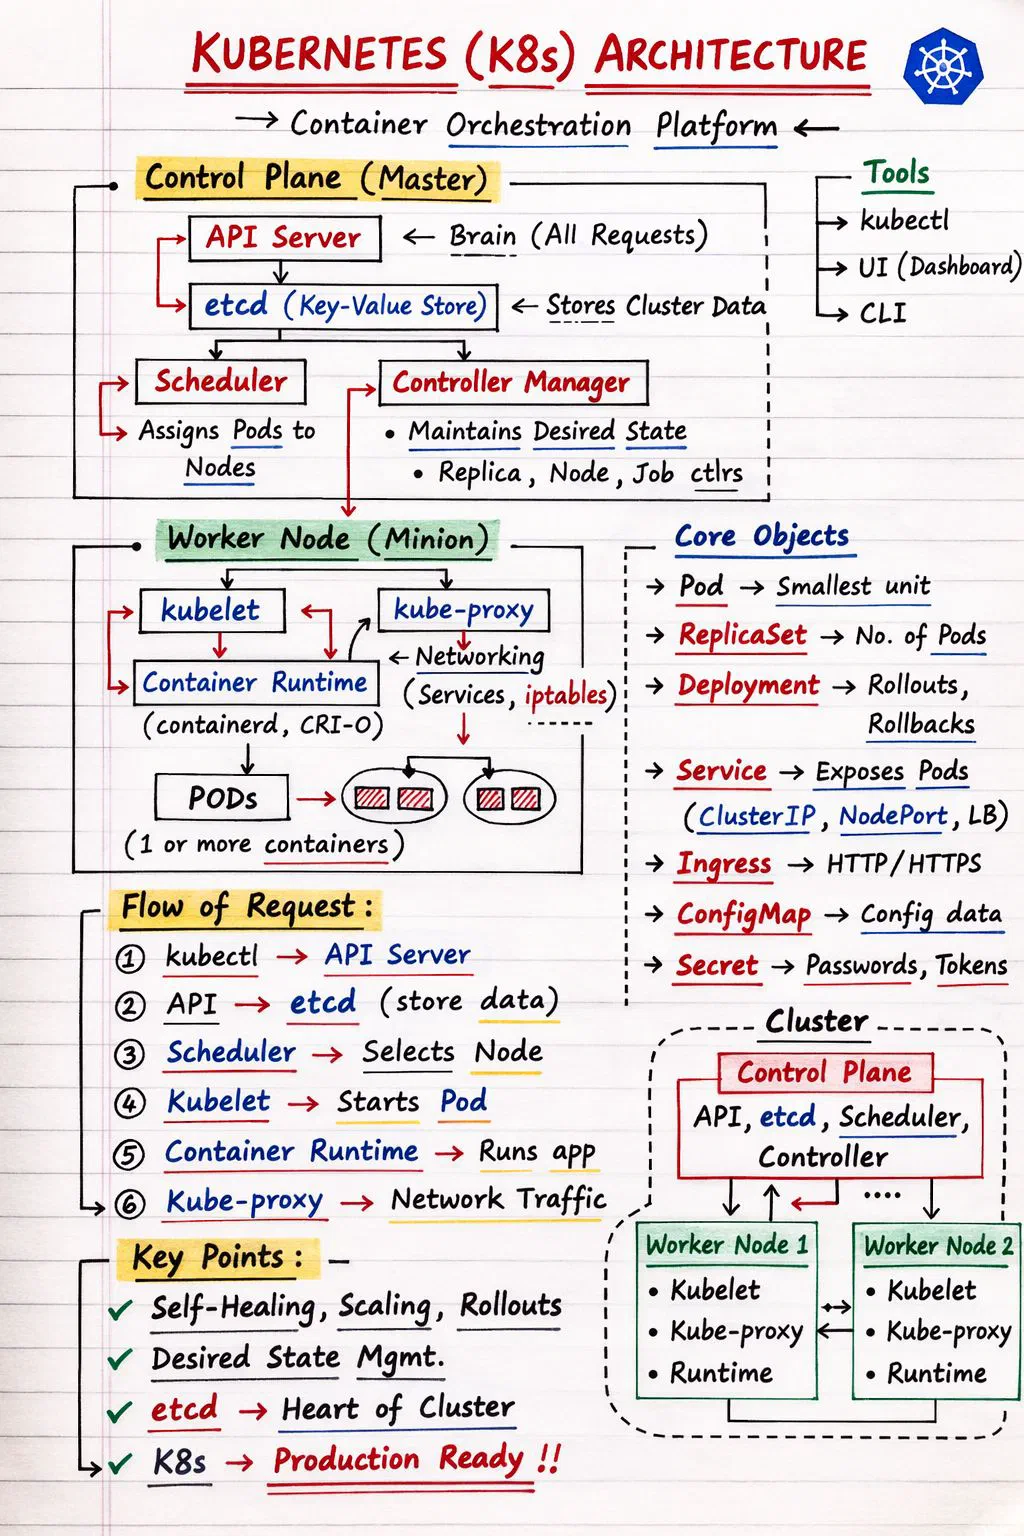 KUBERNETES (K8s) ARCHITECTURE
→ Container Orchestration Platform ←
Control Plane (Master)
API Server ← Brain (All Requests)
etcd (Key-Value Store) ← Stores Cluster Data
Scheduler
Assigns Pods to
Nodes
Controller Manager
• Maintains Desired State
• Replica, Node, Job ctlrs
Tools
kubectl
UI (Dashboard)
CLI
Worker Node (Minion)
kubelet
kube-proxy
Container Runtime
(containerd, CRI-O)
← Networking
(Services, iptables)
PODs
(1 or more containers)
Core Objects
→ Pod → Smallest unit
→ ReplicaSet → No. of Pods
→ Deployment → Rollouts,
Rollbacks
→ Service → Exposes Pods
(ClusterIP, NodePort, LB)
→ Ingress → HTTP/HTTPS
→ ConfigMap → Config data
→ Secret → Passwords, Tokens
Flow of Request:
① kubectl → API Server
② API → etcd (store data)
③ Scheduler → Selects Node
④ Kubelet → Starts Pod
⑤ Container Runtime → Runs app
⑥ Kube-proxy → Network Traffic
Key Points: –
✓ Self-Healing, Scaling, Rollouts
✓ Desired State Mgmt.
✓ etcd → Heart of Cluster
✓ K8s → Production Ready !!
Cluster
Control Plane
API, etcd, Scheduler,
Controller
....
Worker Node 1
• Kubelet
• Kube-proxy
• Runtime
Worker Node 2
• Kubelet
• Kube-proxy
• Runtime